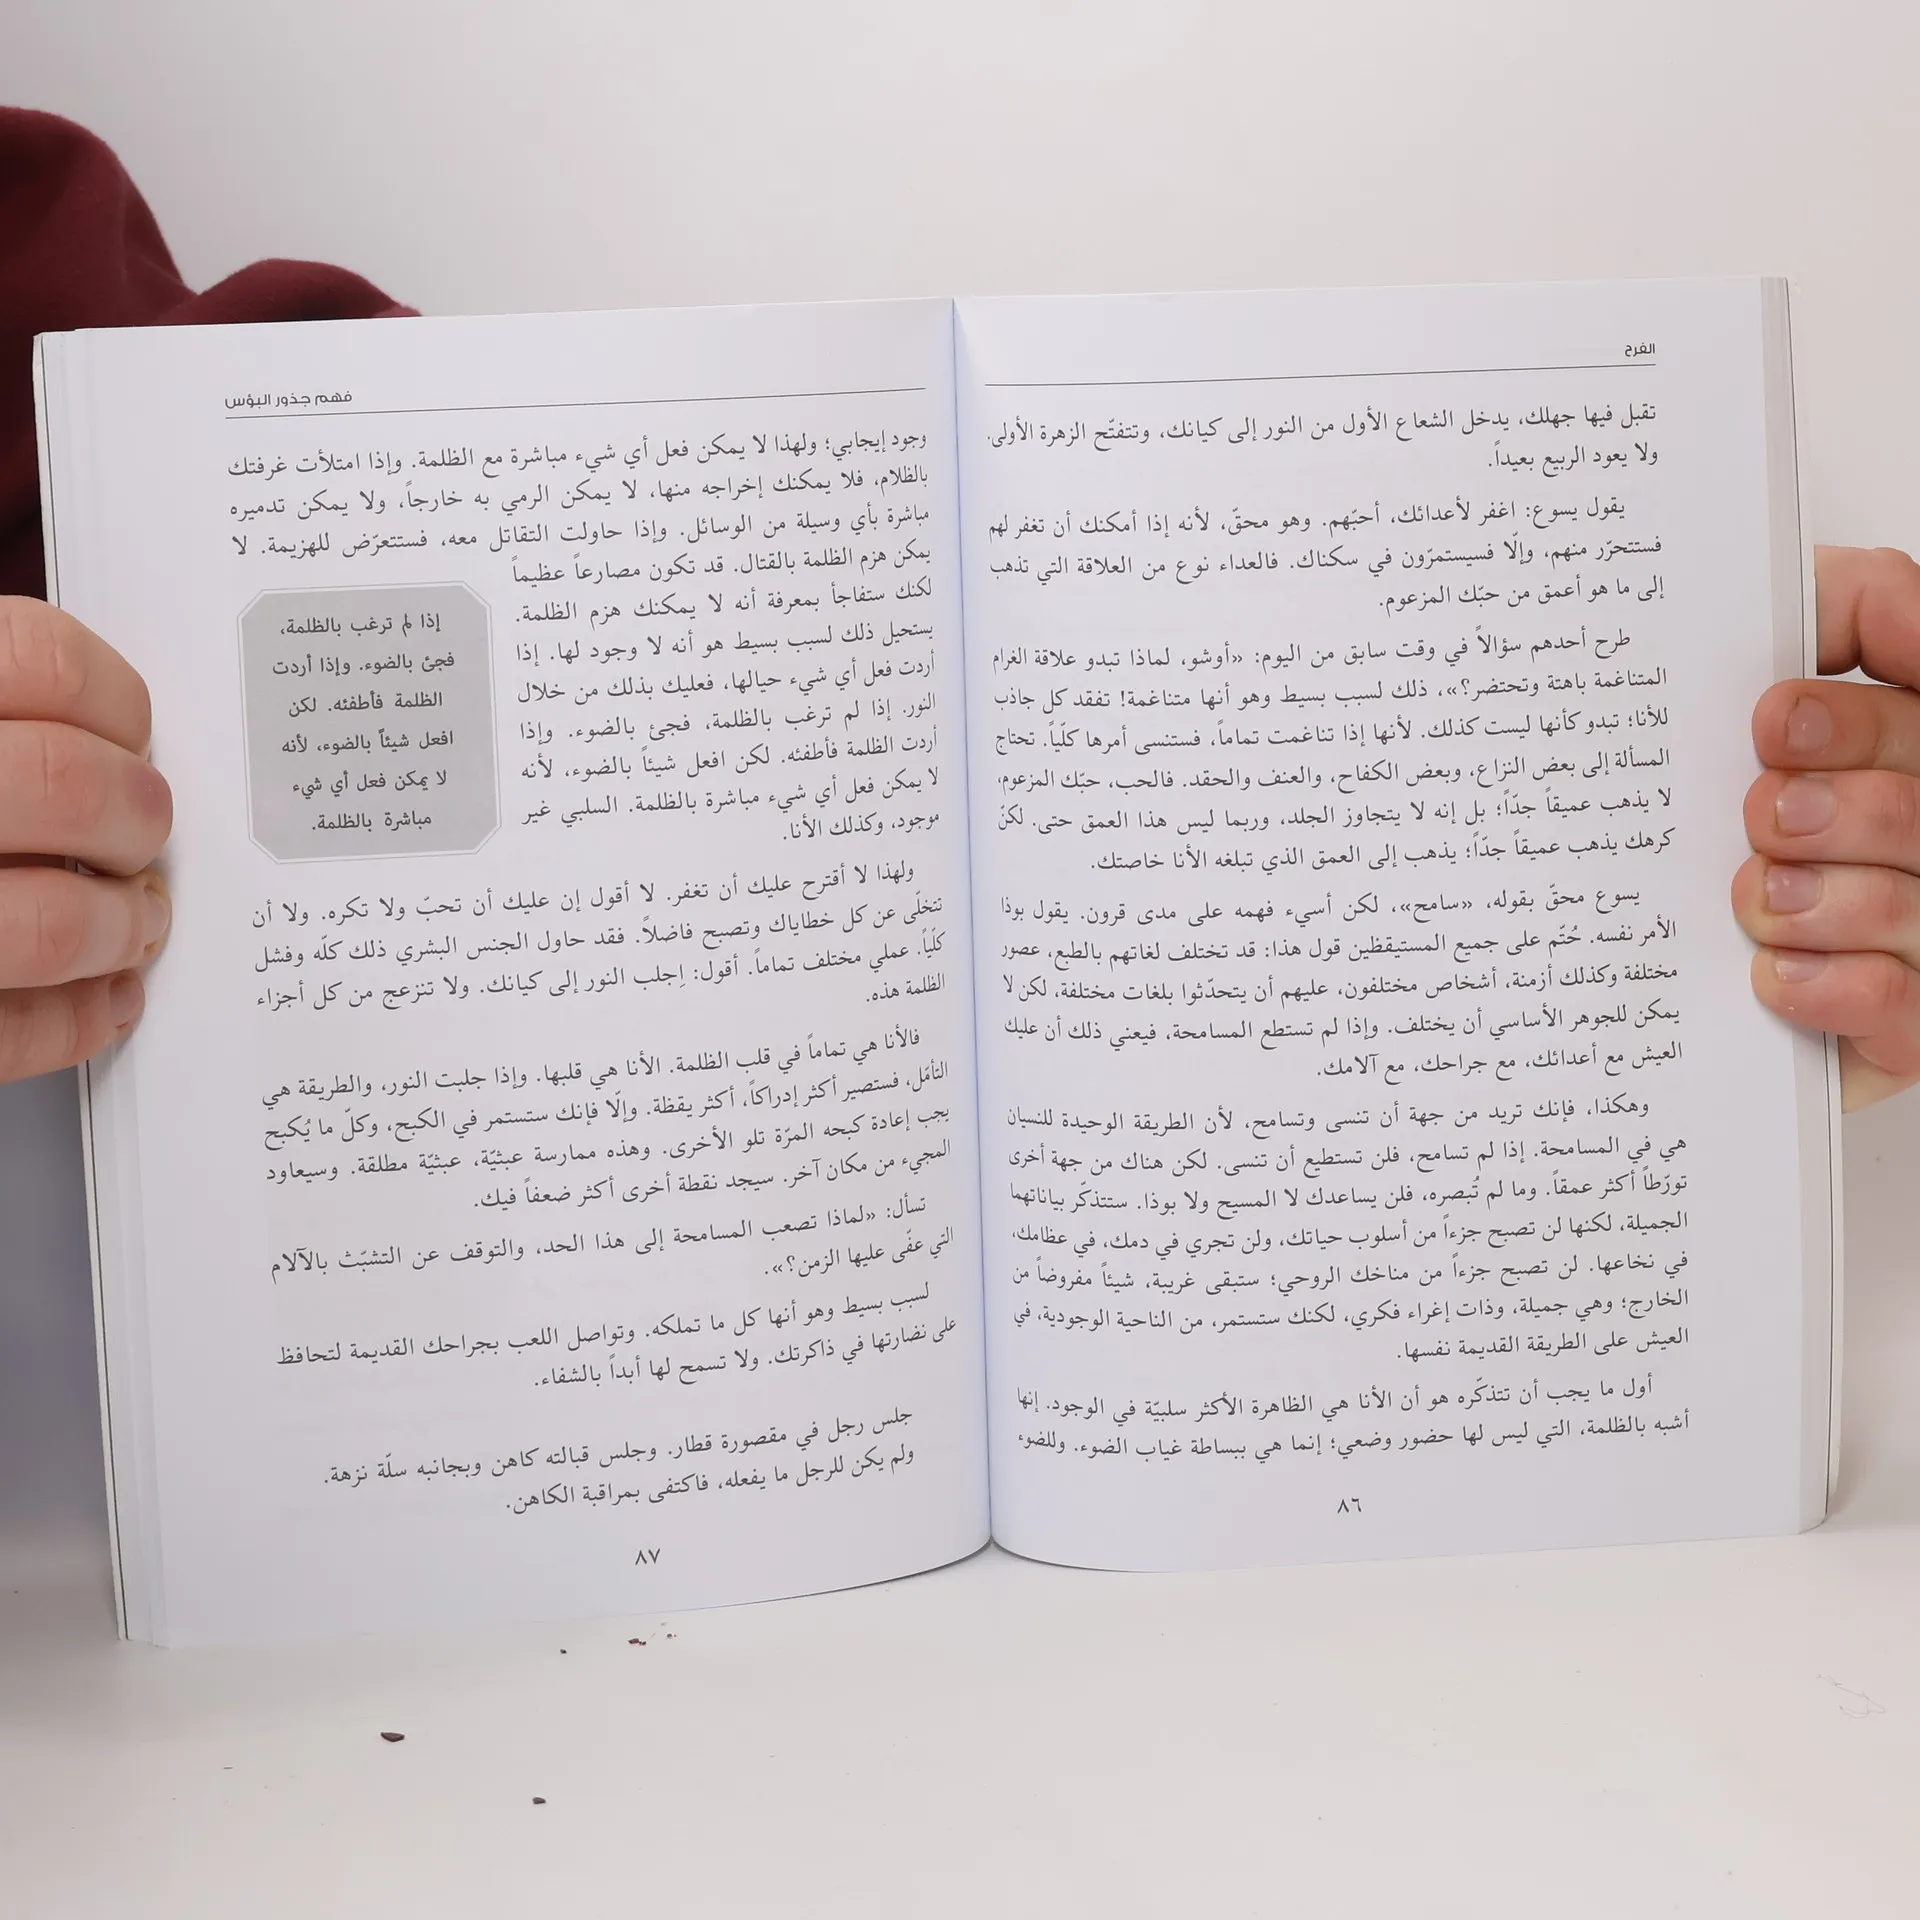 الفرح
تقبل فيها جهلك، يدخل الشعاع الأول من النور إلى كيانك، وتتفتّح الزهرة الأولى.
ولا يعود الربيع بعيداً.
يقول يسوع: اغفر لأعدائك، أحبّهم. وهو محقّ، لأنه إذا أمكنك أن تغفر لهم
فستتحرّر منهم، وإلّا فسيستمرّون في سكناك. فالعداء نوع من العلاقة التي تذهب
إلى ما هو أعمق من حبّك المزعوم.
طرح أحدهم سؤالاً في وقت سابق من اليوم: «أوشو، لماذا تبدو علاقة الغرام
المتناغمة باهتة وتحتضر؟»، ذلك لسبب بسيط وهو أنها متناغمة! تفقد كل جاذب
للأنا؛ تبدو كأنها ليست كذلك. لأنها إذا تناغمت تماماً، فستنسى أمرها كلّياً. تحتاج
المسألة إلى بعض النزاع، وبعض الكفاح، والعنف والحقد. فالحب، حبّك المزعوم،
لا يذهب عميقاً جدّاً؛ بل إنه لا يتجاوز الجلد، وربما ليس هذا العمق حتى. لكنّ
كرهك يذهب عميقاً جدّاً؛ يذهب إلى العمق الذي تبلغه الأنا خاصتك.
يسوع محقّ بقوله، «سامح»، لكن أسيء فهمه على مدى قرون. يقول بوذا
الأمر نفسه. حُتّم على جميع المستيقظين قول هذا: قد تختلف لغاتهم بالطبع، عصور
مختلفة وكذلك أزمنة، أشخاص مختلفون، عليهم أن يتحدّثوا بلغات مختلفة، لكن لا
يمكن للجوهر الأساسي أن يختلف. وإذا لم تستطع المسامحة، فيعني ذلك أن عليك
العيش مع أعدائك، مع جراحك، مع آلامك.
وهكذا، فإنك تريد من جهة أن تنسى وتسامح، لأن الطريقة الوحيدة للنسيان
هي في المسامحة. إذا لم تسامح، فلن تستطيع أن تنسى. لكن هناك من جهة أخرى
تورّطاً أكثر عمقاً. وما لم تُبصره، فلن يساعدك لا المسيح ولا بوذا. ستتذكّر بياناتهما
الجميلة، لكنها لن تصبح جزءاً من أسلوب حياتك، ولن تجري في دمك، في عظامك،
في نخاعها. لن تصبح جزءاً من مناخك الروحي؛ ستبقى غريبة، شيئاً مفروضاً من
الخارج؛ وهي جميلة، وذات إغراء فكري، لكنك ستستمر، من الناحية الوجودية، في
العيش على الطريقة القديمة نفسها.
أول ما يجب أن تتذكّره هو أن الأنا هي الظاهرة الأكثر سلبيّة في الوجود. إنها
أشبه بالظلمة، التي ليس لها حضور وضعي؛ إنما هي ببساطة غياب الضوء. وللضوء
٨٦
فهم جذور البؤس
وجود إيجابي؛ ولهذا لا يمكن فعل أي شيء مباشرة مع الظلمة. وإذا امتلأت غرفتك
بالظلام، فلا يمكنك إخراجه منها، لا يمكن الرمي به خارجاً، ولا يمكن تدميره
مباشرة بأي وسيلة من الوسائل. وإذا حاولت التقاتل معه، فستتعرّض للهزيمة. لا
يمكن هزم الظلمة بالقتال. قد تكون مصارعاً عظيماً
لكنك ستفاجأ بمعرفة أنه لا يمكنك هزم الظلمة.
يستحيل ذلك لسبب بسيط هو أنه لا وجود لها. إذا
أردت فعل أي شيء حيالها، فعليك بذلك من خلال
النور. إذا لم ترغب بالظلمة، فجئ بالضوء. وإذا
أردت الظلمة فأطفئه. لكن افعل شيئاً بالضوء، لأنه
لا يمكن فعل أي شيء مباشرة بالظلمة. السلبي غير
موجود، وكذلك الأنا.
إذا لم ترغب بالظلمة،
فجئ بالضوء. وإذا أردت
الظلمة فأطفئه. لكن
افعل شيئاً بالضوء، لأنه
لا يمكن فعل أي شيء
مباشرة بالظلمة.
ولهذا لا أقترح عليك أن تغفر. لا أقول إن عليك أن تحبّ ولا تكره. ولا أن
تتخلّى عن كل خطاياك وتصبح فاضلاً. فقد حاول الجنس البشري ذلك كلّه وفشل
كلّياً. عملي مختلف تماماً. أقول: اِجلب النور إلى كيانك. ولا تنزعج من كل أجزاء
الظلمة هذه.
فالأنا هي تماماً في قلب الظلمة. الأنا هي قلبها. وإذا جلبت النور، والطريقة هي
التأمّل، فستصير أكثر إدراكاً، أكثر يقظة. وإلّا فإنك ستستمر في الكبح، وكلّ ما يُكبح
يجب إعادة كبحه المرّة تلو الأخرى. وهذه ممارسة عبثيّة، عبثيّة مطلقة. وسيعاود
المجيء من مكان آخر. سيجد نقطة أخرى أكثر ضعفاً فيك.
تسأل: «لماذا تصعب المسامحة إلى هذا الحد، والتوقف عن التشبّث بالآلام
التي عفّى عليها الزمن؟».
لسبب بسيط وهو أنها كل ما تملكه. وتواصل اللعب بجراحك القديمة لتحافظ
على نضارتها في ذاكرتك. ولا تسمح لها أبداً بالشفاء.
جلس رجل في مقصورة قطار. وجلس قبالته كاهن وبجانبه سلّة نزهة.
ولم يكن للرجل ما يفعله، فاكتفى بمراقبة الكاهن.
٨٧